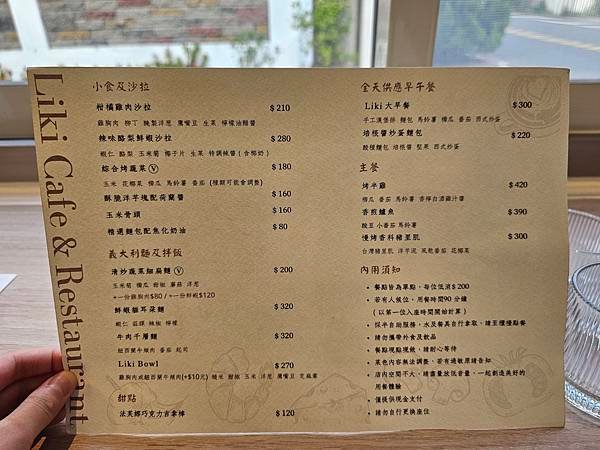 Liki Cafe & Restaurant
小食及沙拉
柑橘雞肉沙拉 $210
雞胸肉 柳丁 醃製洋蔥 鷹嘴豆 生菜 檸檬油醋醬
辣味酪梨鮮蝦沙拉 $280
蝦仁 酪梨 玉米菊 椰子片 生菜 特調辣醬 (含椰奶)
綜合烤蔬菜 Ⓥ $180
玉米 花椰菜 櫛瓜 馬鈴薯 番茄 (種類可能會調整)
酥脆洋芋塊配荷蘭醬 $160
玉米骨頭 $160
精選麵包配焦化奶油 $80
義大利麵及拌飯
清炒蔬菜細扁麵 Ⓥ $200
玉米筍 櫛瓜 甜椒 蘑菇 洋蔥
+一份雞胸肉$80 / +一份鮮蝦$120
鮮蝦貓耳朵麵 $320
蝦仁 蒜頭 辣椒 檸檬
牛肉千層麵 $320
紐西蘭牛絞肉 番茄 起司
Liki Bowl $270
雞胸肉或紐西蘭牛絞肉(+$10元) 糙米 甜椒 玉米 洋蔥 鷹嘴豆 芝麻葉
甜點
法芙娜巧克力吉拿棒 $120
全天供應早午餐
Liki 大早餐 $300
手工漢堡排 麵包 馬鈴薯 櫛瓜 番茄 西式炒蛋
培根醬炒蛋麵包 $220
酸種麵包 培根醬 堅果 西式炒蛋
主餐
烤半雞 $420
櫛瓜 番茄 馬鈴薯 香檸白酒雞汁醬
香煎鱸魚 $390
豌豆小番茄馬鈴薯
慢烤香料豬里肌 $300
台灣豬里肌 洋芋泥 風乾番茄 花椰菜
內用須知
• 餐點皆為單點，每位低消$200
• 若有人候位，用餐時間90分鐘
(以第一位入座時間開始計算)
• 採半自助服務，水及餐具自行拿取，請至櫃檯點餐
• 請勿攜帶外食及飲品
• 餐點現點現做，請耐心等待
• 菜色內容無法調整，若有過敏原請告知
• 店內空間不大，請盡量放低音量，一起創造美好的
用餐體驗
• 僅提供現金支付
• 請勿自行更換座位